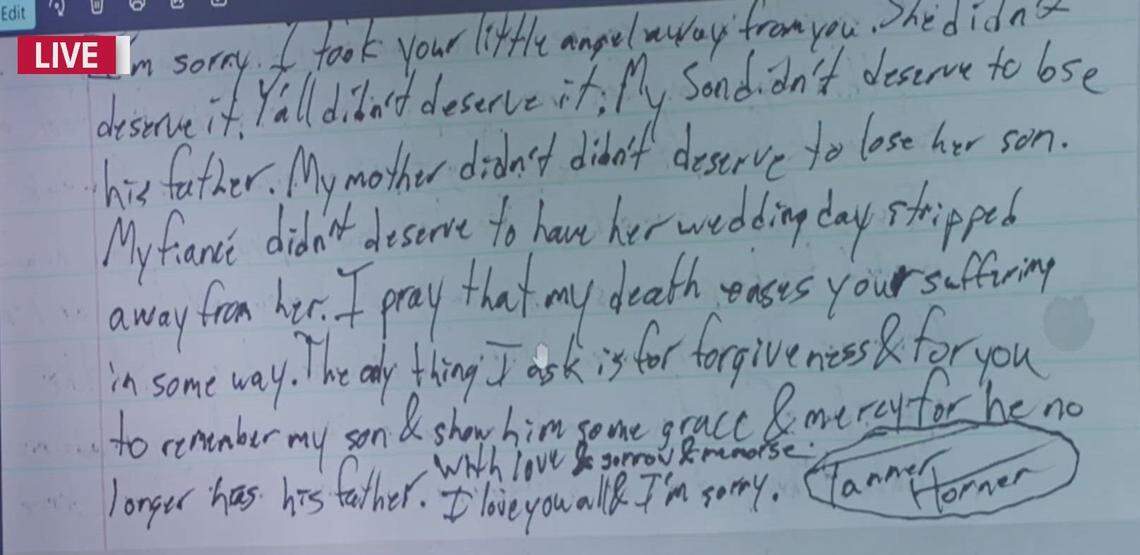 Edit
LIVE
I'm sorry. I took your little angel away from you. She didn't
deserve it. Y'all didn't deserve it. My son didn't deserve to lose
his father. My mother didn't didn't deserve to lose her son.
My fiancé didn't deserve to have her wedding day stripped
away from her. I pray that my death eases your suffering
in some way. The only thing I ask is for forgiveness & for you
to remember my son & show him some grace & mercy for he no
longer has his father. I love you all & I'm sorry.
With love & sorrow & remorse
Tanner Horner